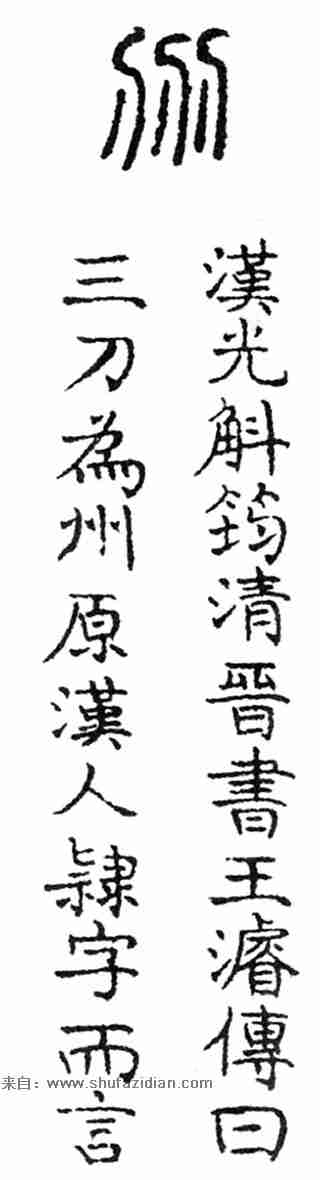 漢光斛筠清晉書王濬傳曰
三刀為州原漢人隸字而言
来自：www.shufazidian.com